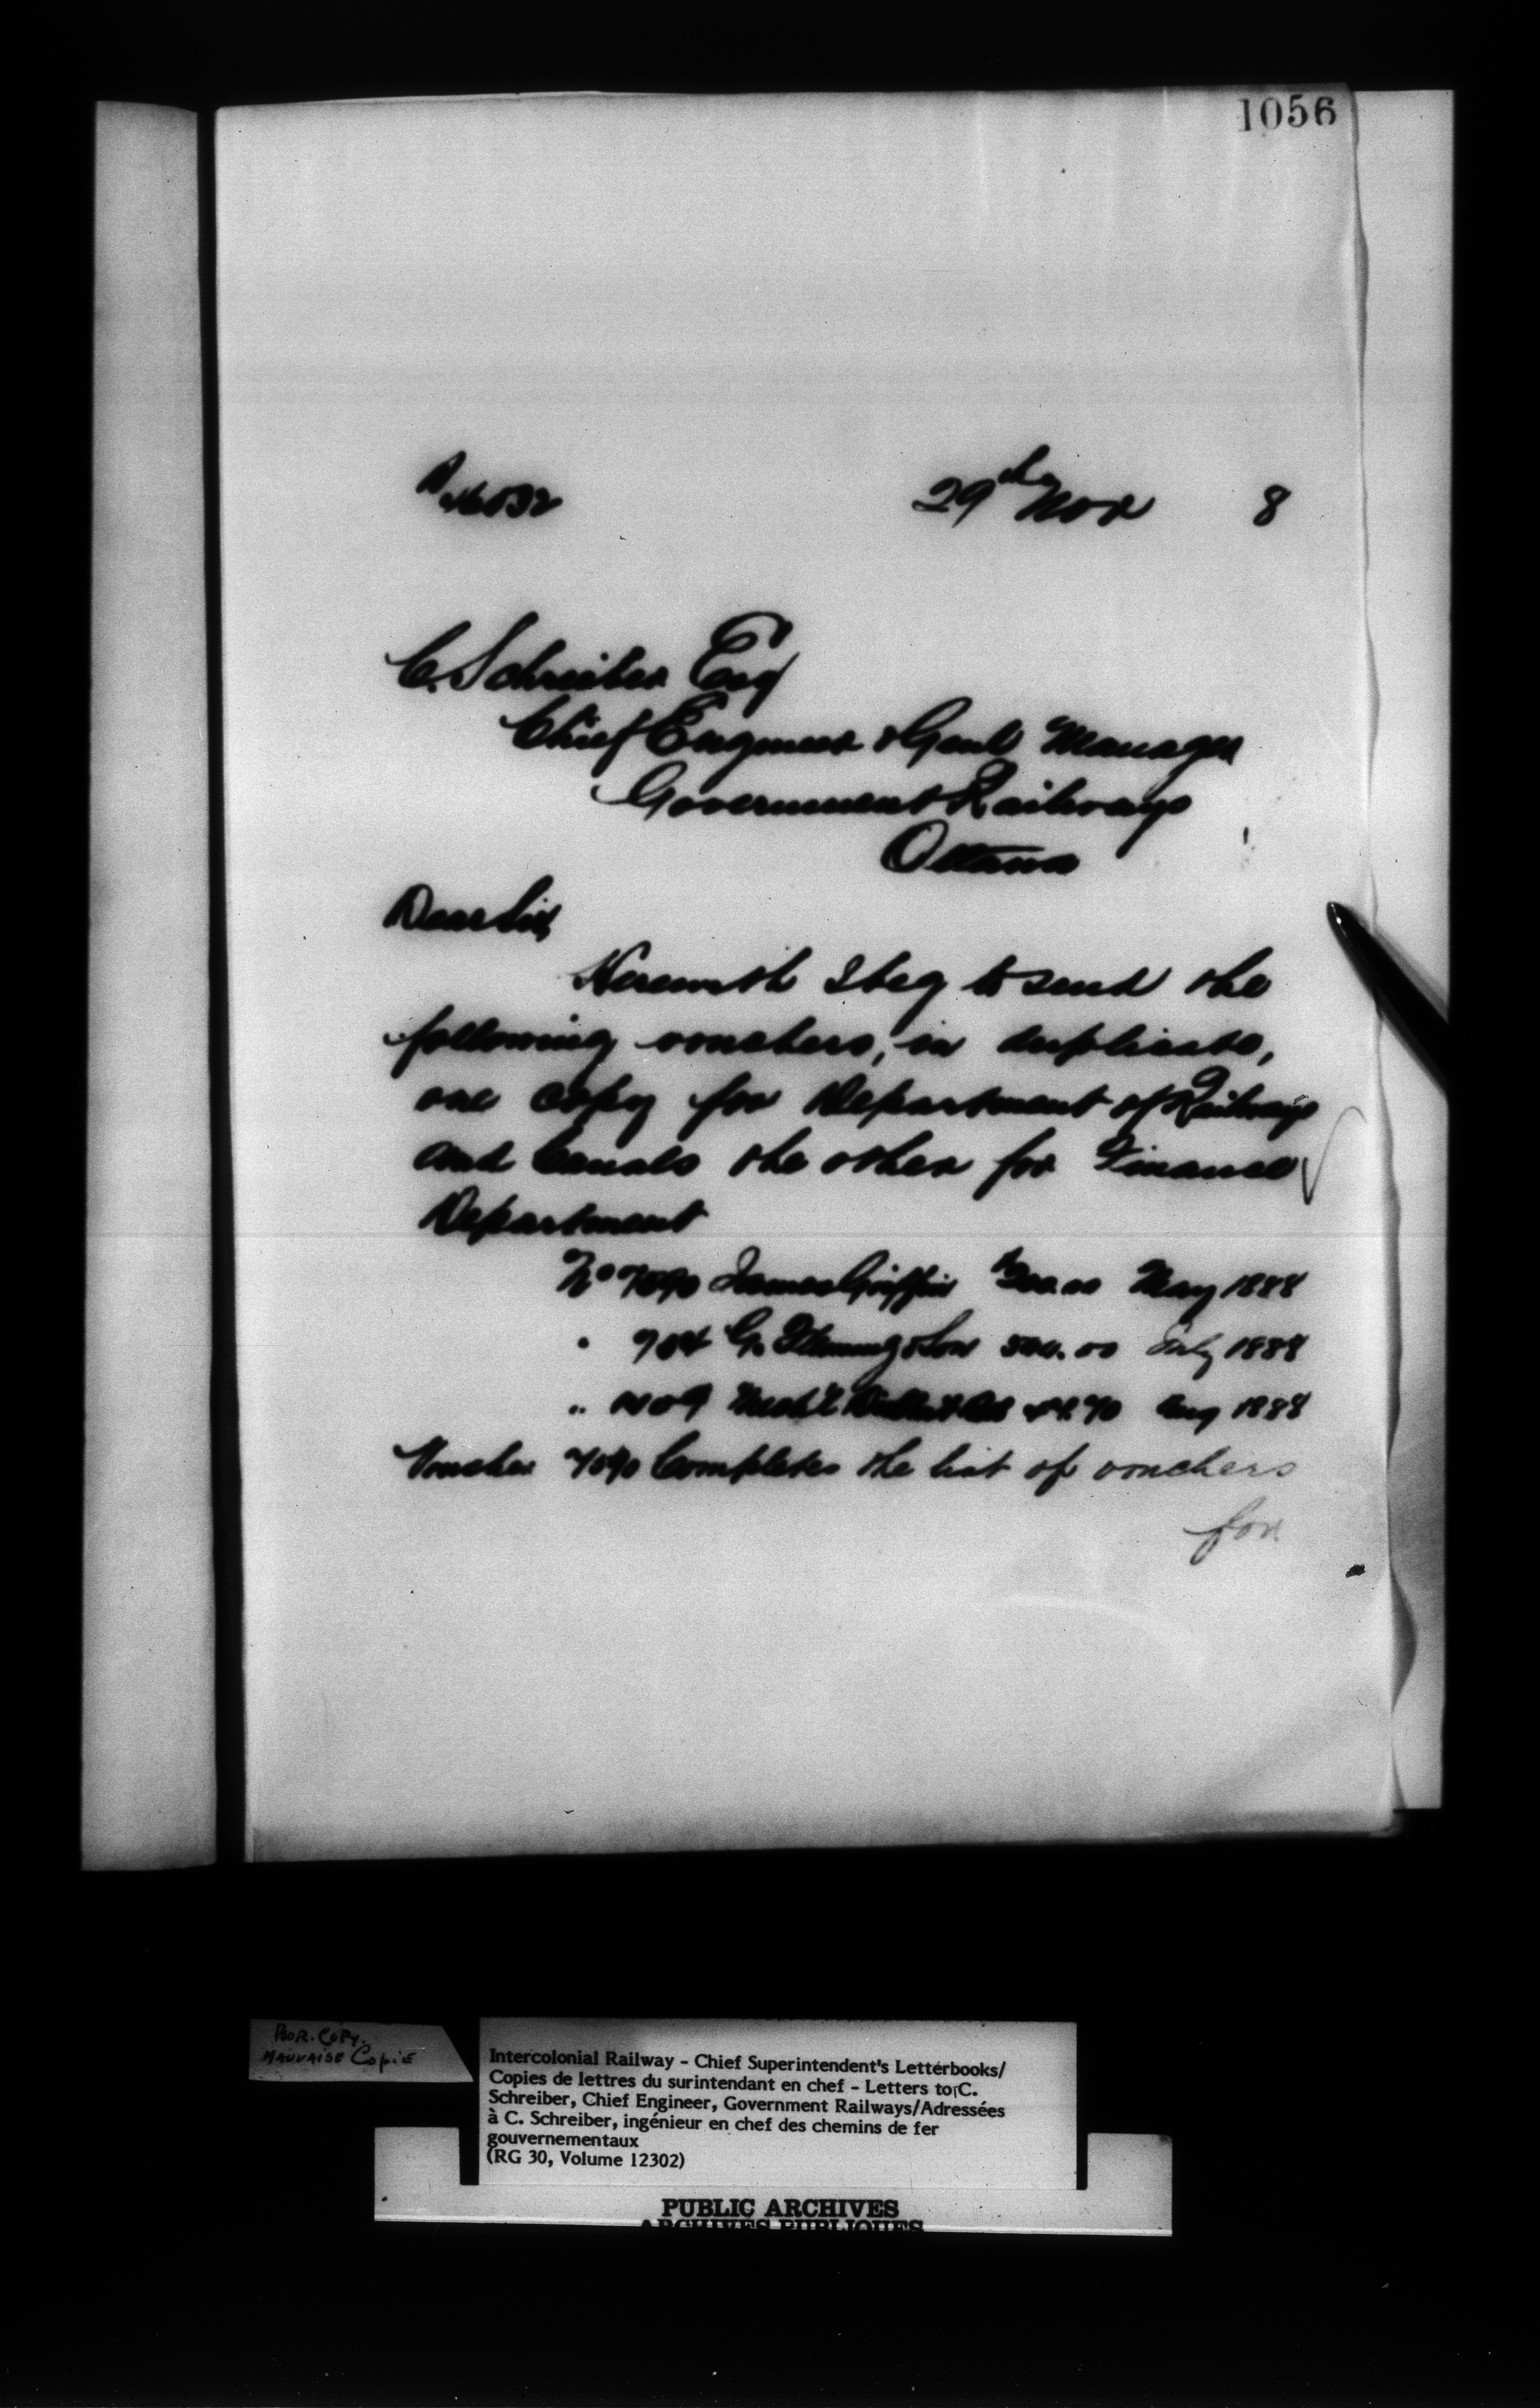 1056
29th Nov 8
C. Schreiber Esq
Chief Engineer & Genl Manager
Government Railways
Ottawa
Dear Sir,
Herewith I beg to send the
following vouchers, in duplicate,
one copy for Department of Railways
and Canals the other for Finance
Department
No 7090 James Griffin May 1888
" 704 G. Fleming & Son 500.00 July 1888
" Aug 1888
Voucher 7090 Completes the list of vouchers
for
POOR. COPY.
MAUVAISE COPIE
Intercolonial Railway - Chief Superintendent's Letterbooks/
Copies de lettres du surintendant en chef - Letters to C.
Schreiber, Chief Engineer, Government Railways/Adressées
à C. Schreiber, ingénieur en chef des chemins de fer
gouvernementaux
(RG 30, Volume 12302)
PUBLIC ARCHIVES
ARCHIVES PUBLIQUES